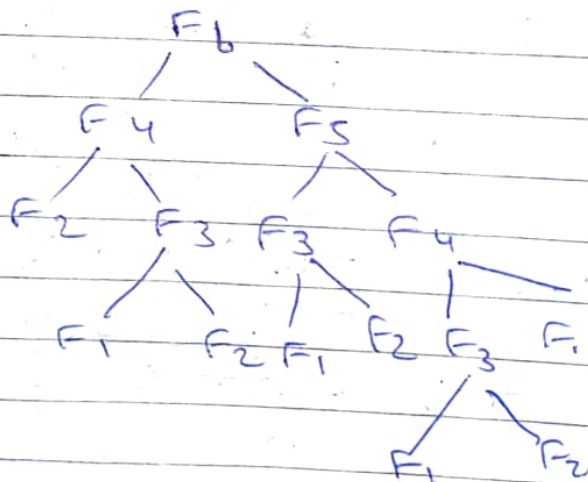 F6
F4 F5
F2 F3 F3 F4
F1 F2 F1 F2 F3 F
F1 F2